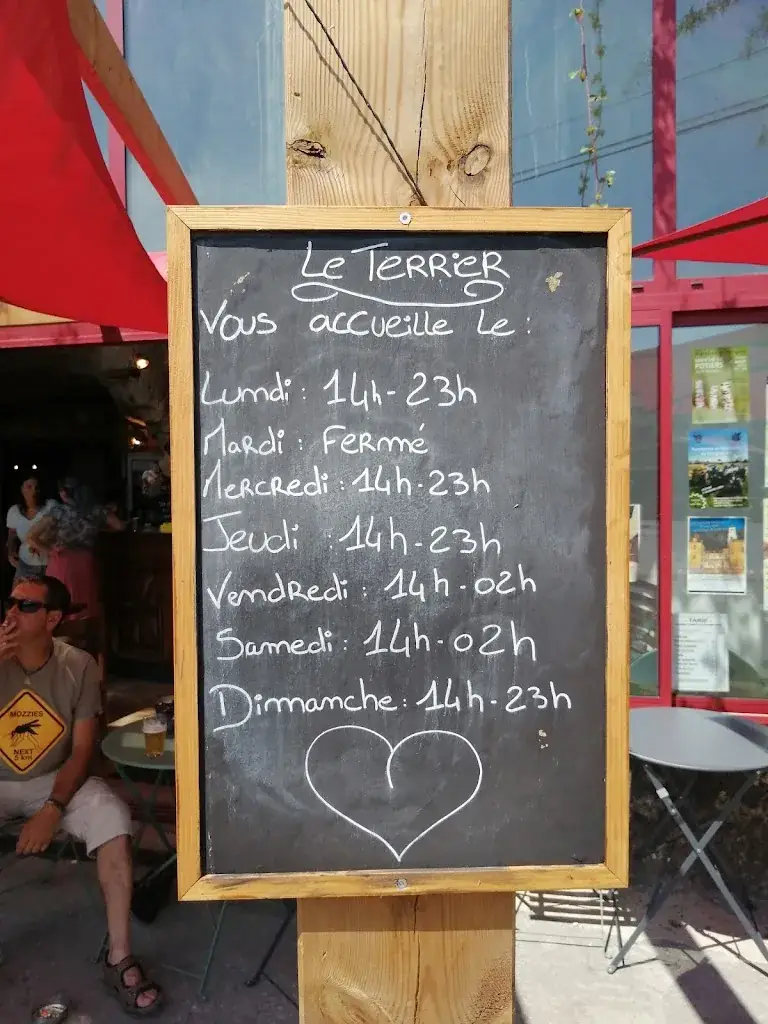 Le Terrier
Vous accueille le :
Lundi : 14h - 23h
Mardi : Fermé
Mercredi : 14h - 23h
Jeudi : 14h - 23h
Vendredi : 14h - 02h
Samedi : 14h - 02h
Dimanche : 14h - 23h
MOZZIES
NEXT
5 km
POTIERS